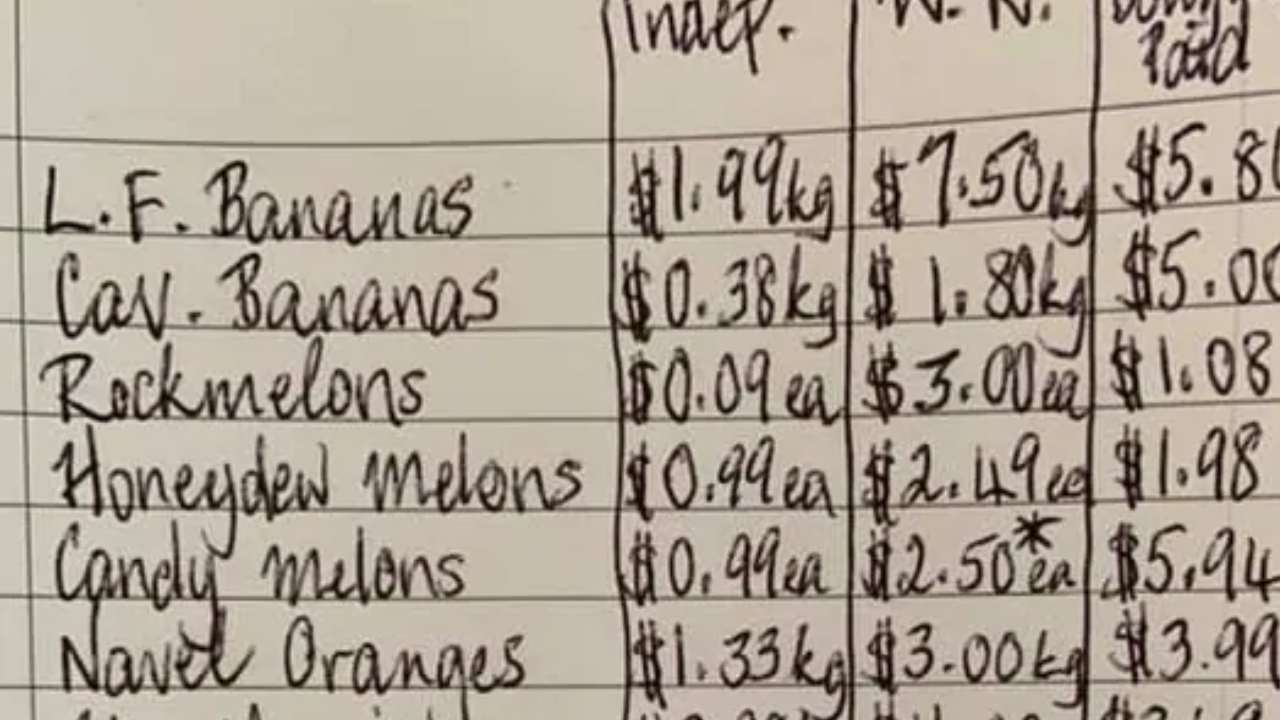 Indep. W. W.
Paid
L.F. Bananas $1.99kg $7.50kg $5.80
Cav. Bananas $0.38kg $1.80kg $5.00
Rockmelons $0.09ea $3.00ea $1.08
Honeydew Melons $0.99ea $2.49ea $1.98
Candy melons $0.99ea $2.50*ea $5.94
Navel Oranges $1.33kg $3.00kg $3.99